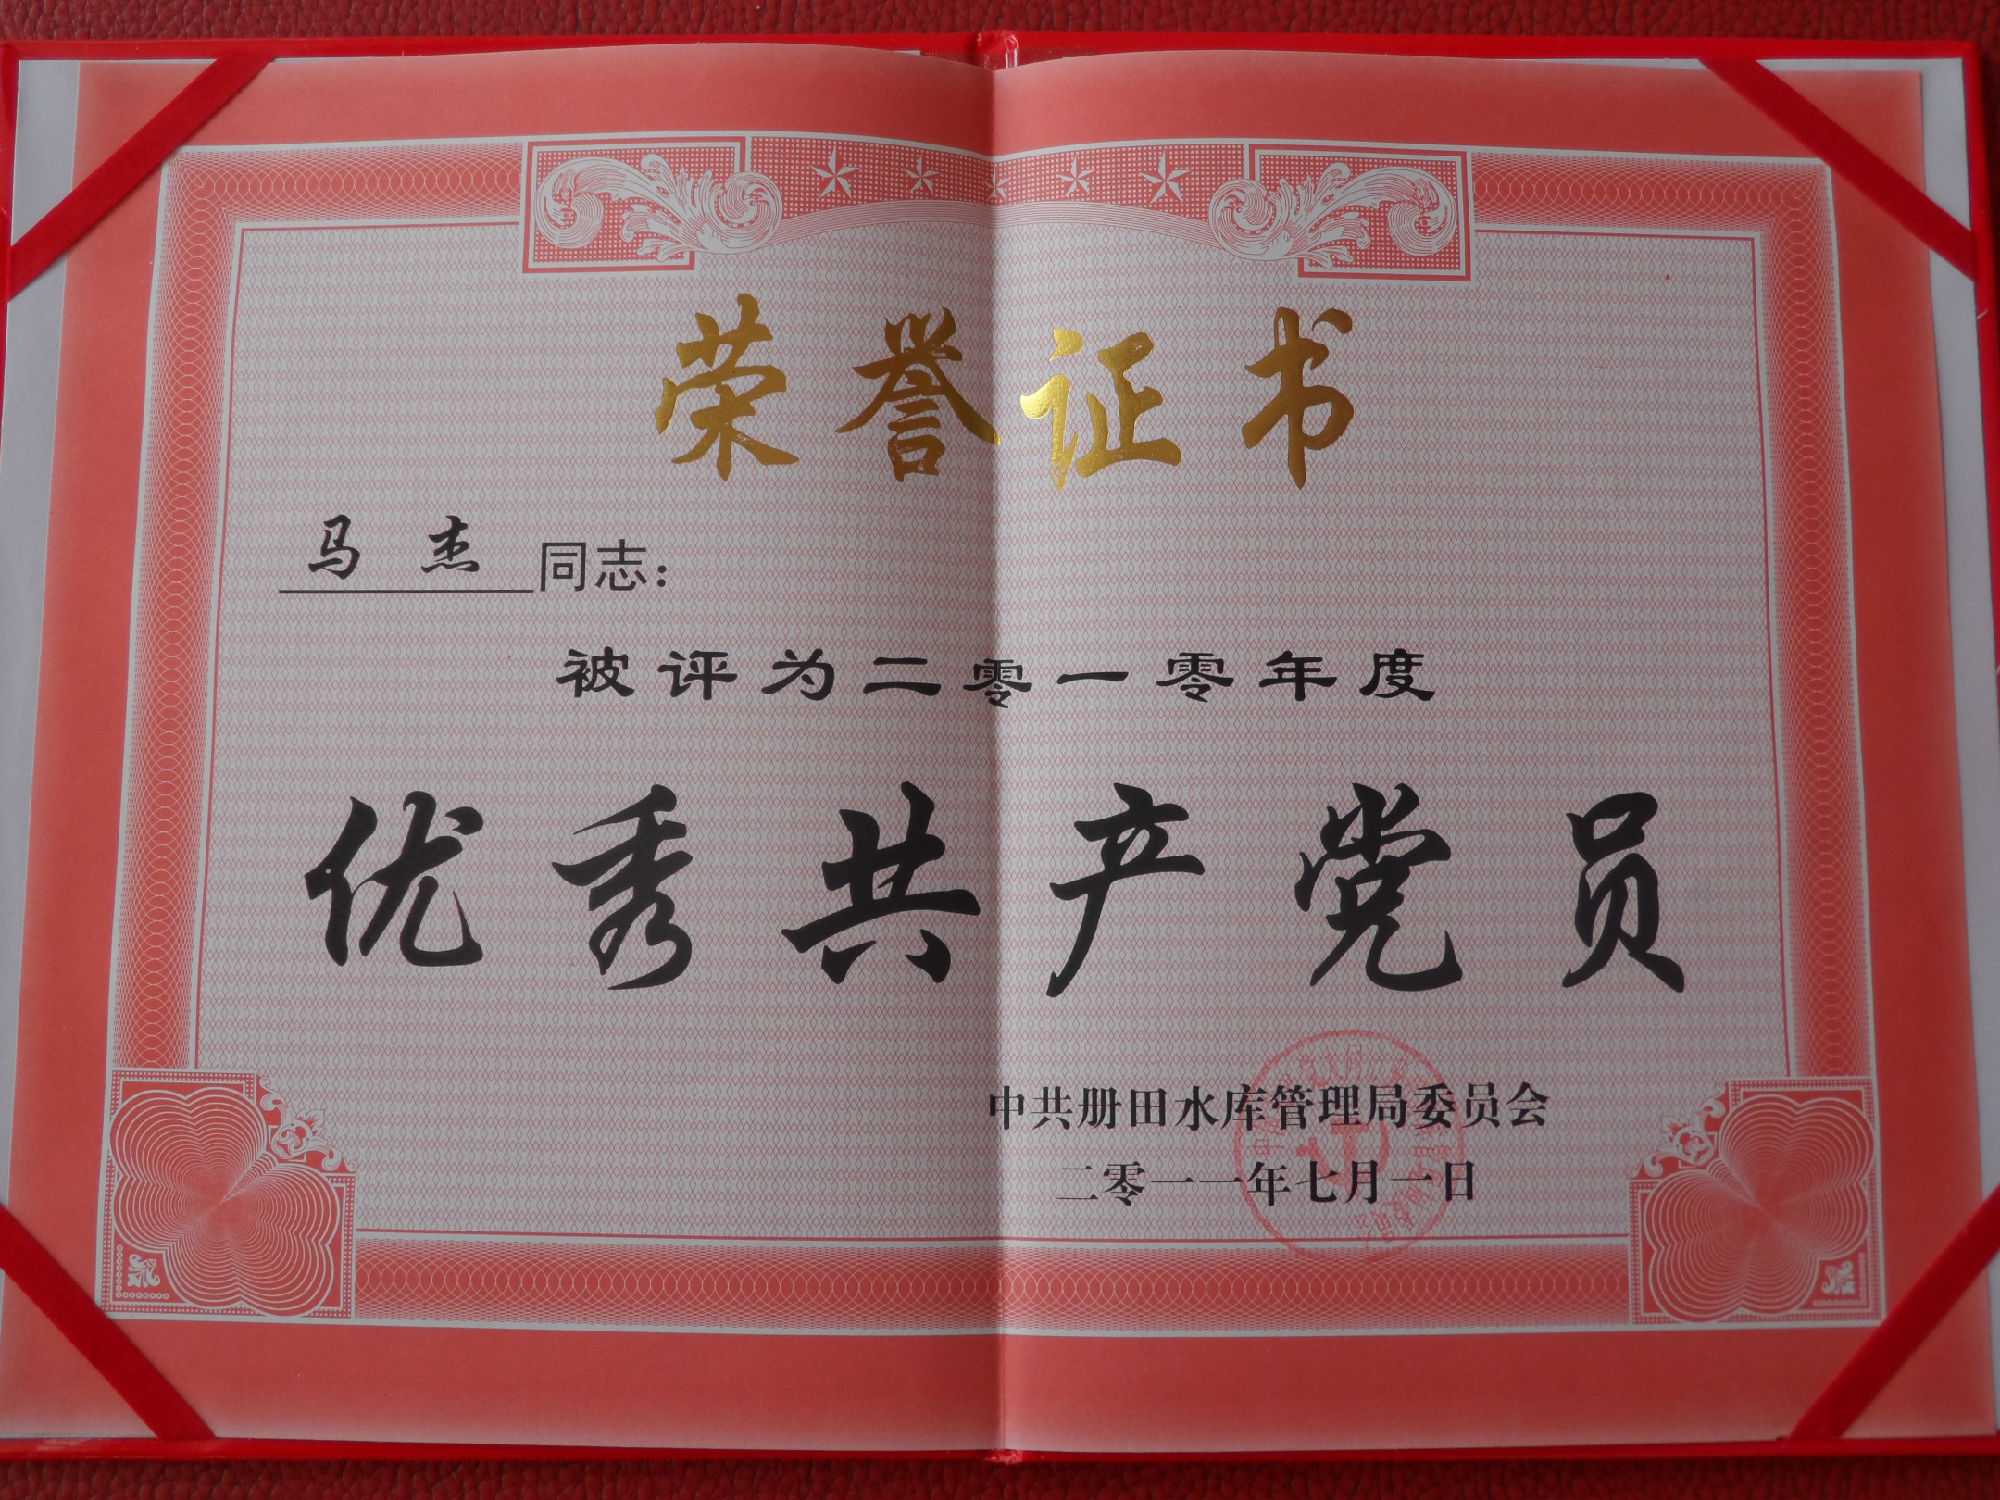 荣誉证书
马杰同志：
被评为二零一零年度
优秀共产党员
中共册田水库管理局委员会
二零一一年七月一日